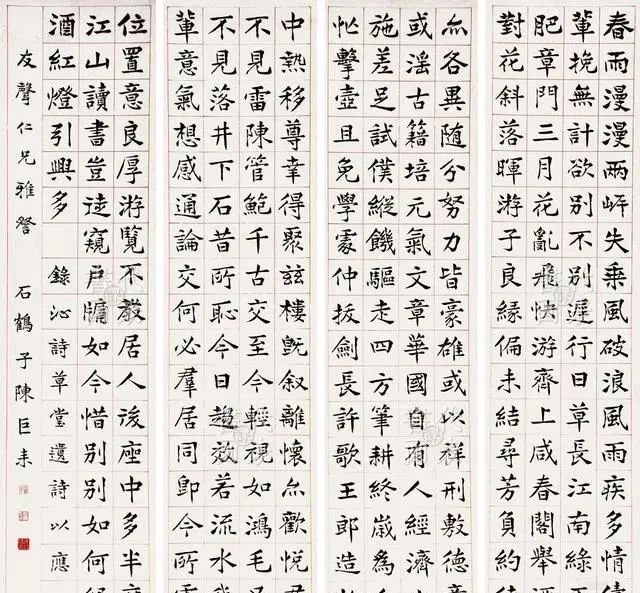 春雨漫漫兩岍失乘風破浪風雨疾多情
輩挽無計欲別不別遲行日草長江南綠
肥章門三月花亂飛快游齊上咸春閣舉
對花斜落暉游子良緣偏未結尋芳負約
亦各異随分努力皆豪雄或以祥刑敷德
或滛古籍培元氣文章華國自有人經濟
施差足試僕縱饑驅走四方筆耕終歲爲
忙擊壺且免學處仲拔劍長許歌王郎造
中熱移尊幸得聚玆樓既叙離懷亦歡悅
不見雷陳管鮑千古交至今輕視如鴻毛
不見落井下石昔所恥今日趨效若流水
輩意氣想感通論交何必羣居同卽今所
位置意良厚游覽不教居人後座中多半
江山讀書豈逺窺戶牖如今惜別別如何
酒紅燈引興多 錄沁詩草堂遺詩以應
友聲仁兄雅詧 石鶴子陳巨来